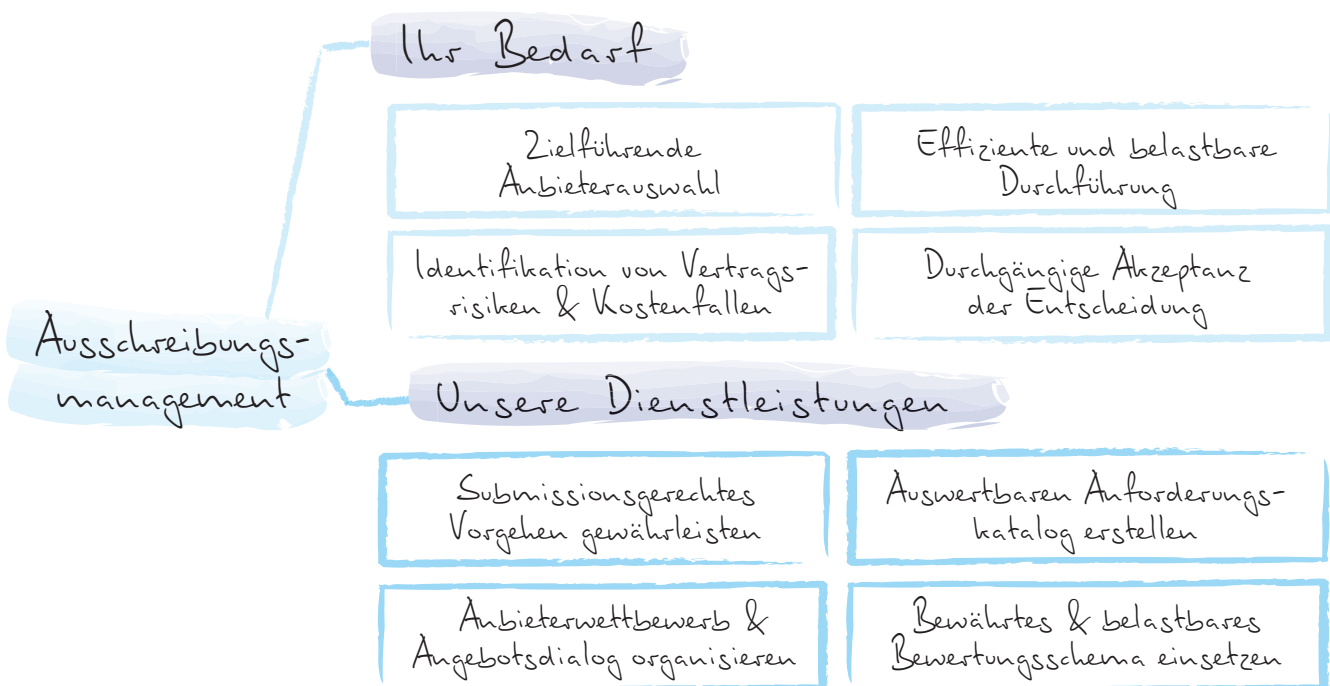 Ihr Bedarf
Zielführende
Anbieterauswahl
Effiziente und belastbare
Durchführung
Identifikation von Vertrags-
risiken & Kostenfallen
Durchgängige Akzeptanz
der Entscheidung
Ausschreibungs-
management
Unsere Dienstleistungen
Submissionsgerechtes
Vorgehen gewährleisten
Auswertbaren Anforderungs-
katalog erstellen
Anbieterwettbewerb &
Angebotsdialog organisieren
Bewährtes & belastbares
Bewertungsschema einsetzen